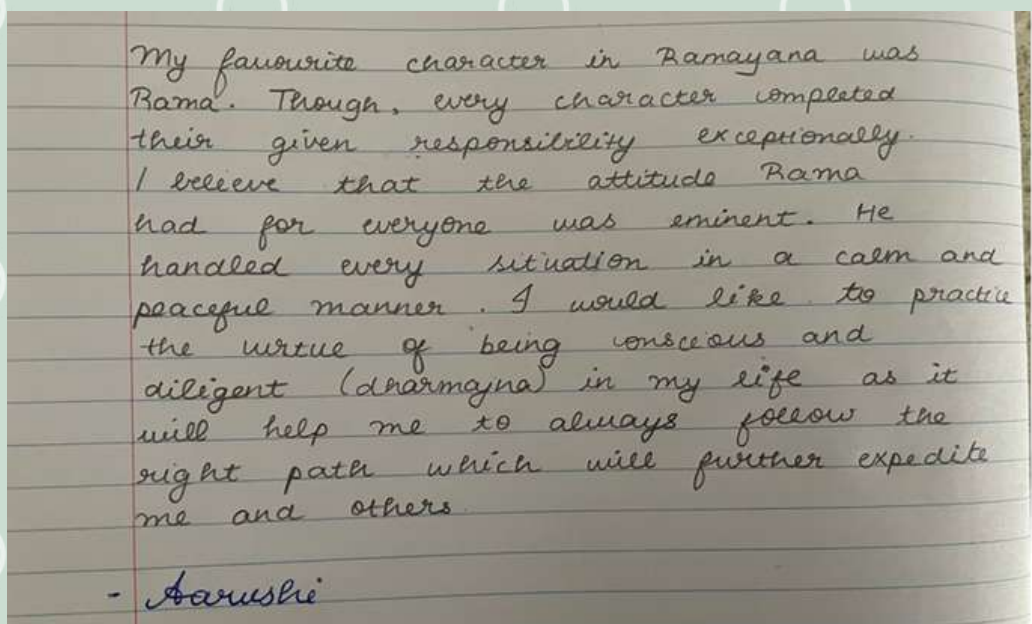 My favourite character in Ramayana was
Rama. Though, every character completed
their given responsibility exceptionally.
I believe that the attitude Rama
had for everyone was eminent. He
handled every situation in a calm and
peaceful manner. I would like to practice
the virtue of being conscious and
diligent (dharmajna) in my life as it
will help me to always follow the
right path which will further expedite
me and others
- Aarushi